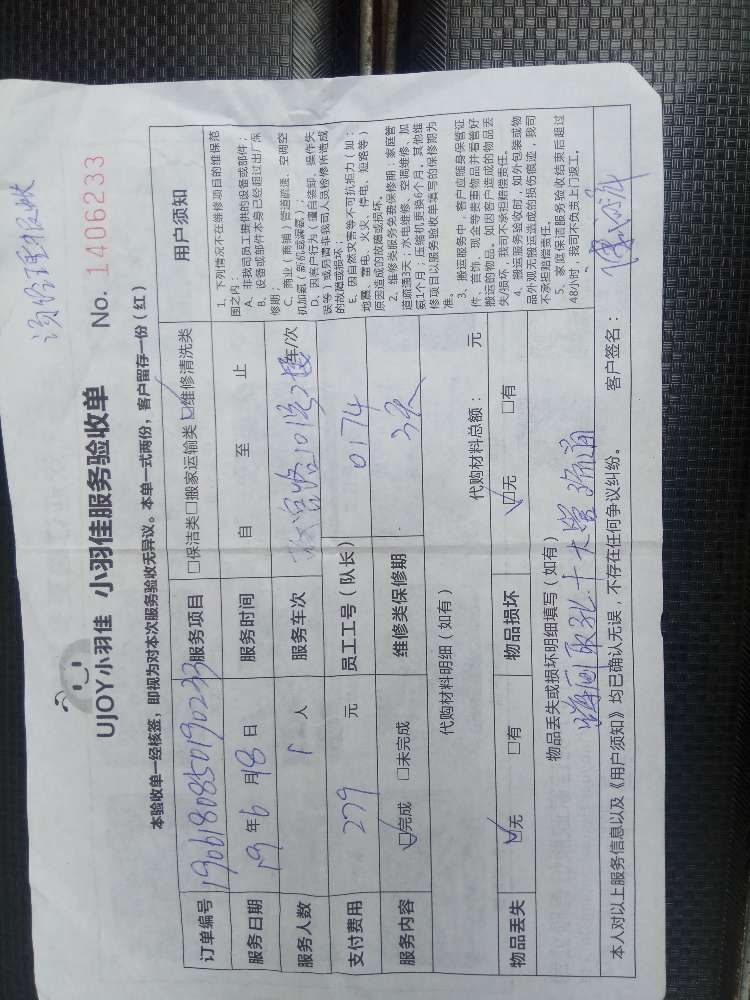 No. 1406233
UJOY小羽佳 小羽佳服务验收单
本验收单一经核签，即视为对本次服务验收无异议。本单一式两份，客户留存一份（红）
订单编号 1906180850190233 服务项目 □保洁类□搬家运输类☑维修清洗类
服务日期 19年6月18日 服务时间 自 至 止
服务人数 1 人 服务车次 车/次
支付费用 279 元 员工工号（队长） 0174
服务内容 ☑完成 □未完成 维修类保修期 3天
代购材料明细（如有） 代购材料总额： 元
物品丢失 ☑无 □有 物品损坏 ☑无 □有
物品丢失或损坏明细填写（如有）
疏通
本人对以上服务信息以及《用户须知》均已确认无误，不存在任何争议纠纷。 客户签名：
用户须知
1、下列情况不在维修项目的维保范
围之内：
A、非我司员工提供的设备或部件；
B、设备或部件本身已经超过出厂保
修期；
C、商业（商铺）管道疏通、空调空
机加氨（新机或漏氨）；
D、因客户行为（擅自装卸、操作失
误等）或另请非我司人员检修所造成
的故障或损坏；
E、因自然灾害等不可抗拒力（如：
地震、雷电、火灾、停电、短路等）
原因造成的故障或损坏。
2、维修类服务免费保修期：家庭管
道疏通3天；水电维修、空调维修、加
氨1个月；压缩机更换6个月，其他维
修项目以服务验收单填写的保修期为
准。
3、搬运服务中，客户应随身保管证
件、首饰、现金等贵重物品并看管好
搬运的物品。如因客户造成的物品丢
失/损坏，我司不承担赔偿责任。
4、搬运服务验收时，如外包装或物
品外观无搬运造成的损伤痕迹，我司
不承担赔偿责任。
5、家庭保洁服务验收结束后超过
48小时，我司不负责上门返工。